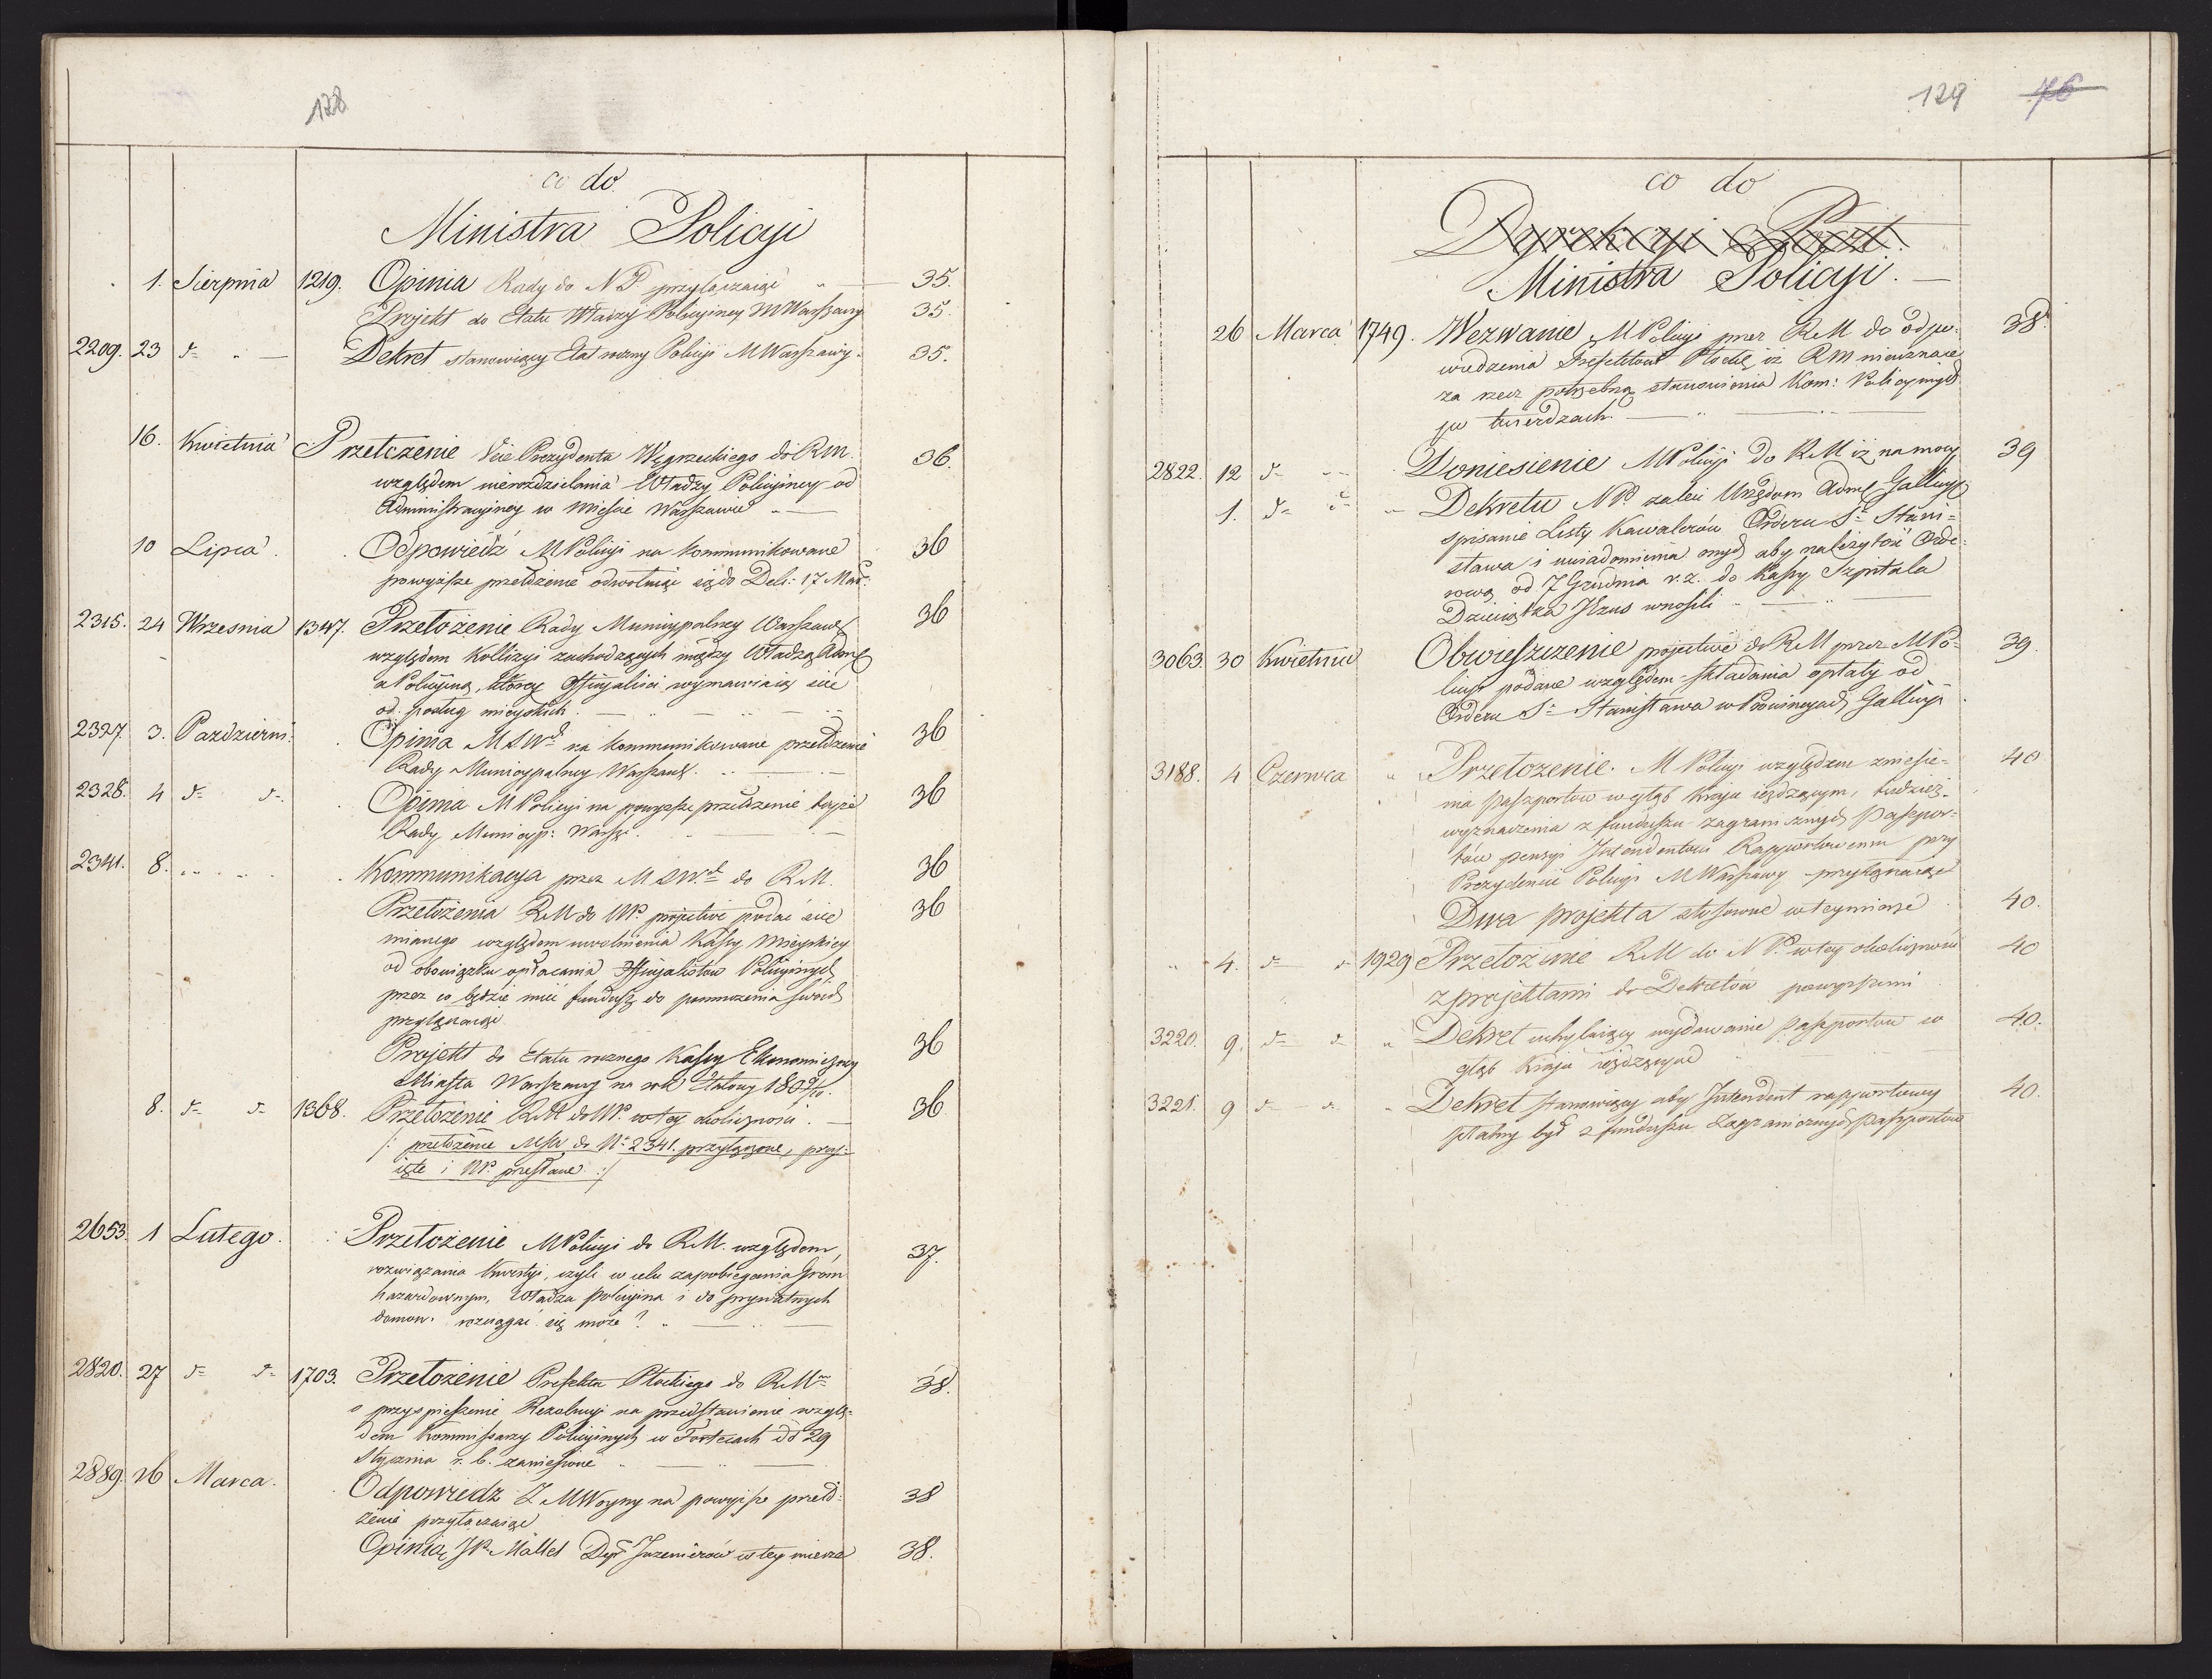 128
co do
Ministra Policyi
1. Sierpnia 1219. Opinia Rady do N P. przyłączaiąc 35.
Projekt do Etatu Władzy Policyiney M Warszawy 35.
2209. 23 d= Dekret stanowiący Etat roczny Policyi M Warszawy. 35.
16. Kwietnia Przełożenie Vice Prezydenta Węgrzeckiego do RM. 36.
względem nierozdzielania Władzy Policyiney od
Administracyiney w Mieście Warszawie
10 Lipca. Odpowiedź M Policyi na kommunikowane 36
powyższe przełożenie odwołuiąc się do Dek: 17 Mar:
2315. 24 Wrzesnia 1347. Przełożenie Rady Municypalney Warszaws 36
względem Kollizyi zachodzących między Władzą Adm
a Policyiną, którey Officyaliści wymawiaią się
od posług mieyskich.
2327 3. Pazdziern: Opinia M S W na kommunikowane przełożenie 36
Rady Municypalney Warszaws.
2328. 4 d= d=. Opinia M Policyi na powyższe przełożenie teyże 36
Rady Municyp: Warsz:
2341. 8. Kommunikacya przez M S W. do R M. 36
Przełożenia RM do NP. projective podać się 36
mianego względem uwolnienia Kassy Mieyskiey
od obowiązku opłacania Officyalistów Policyinych
przez co będzie mieć fundusz do pomnożenia swoich
przyłączaiąc
Projekt do Etatu rocznego Kassy Ekonomiczney 36
Miasta Warszawy na rok Etatowy 1809/10.
8. d= d= 1368. Przełożenie RM do NP. w tey okoliczności. 36
/: przełożenie MSW do N= 2341. przyłączone, przy=
ięte i NP. przesłane :/
2653. 1 Lutego. Przełożenie M Policyi do RM. względem, 37.
rozwiązania kwestyi, czyli w celu zapobiegania grom
hazardownym, Władza policyina i do prywatnych
domow. rozciągać się może?
2820. 27 d= d= 1703. Przełożenie Prefekta Płockiego do RM 38.
o przyspieszenie Rezolucyi na przedstawienie wzglę=
dem Kommissarzy Policyinych w Fortecach d° 29
Stycznia r. b. zaniesione
2889. 26 Marca. Odpowiedz Z MWoyny na powyższe przeło= 38
żenie przyłączaiąc
Opinią JP. Mallet Dyr Inzenierów w tey mierze 38.
129 76
co do
Dyrekcyi Poczt.
Ministra Policyi.
26 Marca 1749. Wezwanie M Policyi przez RM do odpo= 38.
wiedzenia Prefektowi Płock iż RM nieuznaie
za rzecz potrzebną stanowienia Kom: Policyinych
po twierdzach
2822. 12 d= Doniesienie MPolicyi do RM iż na mocy 39
1. d= Dekretu NP zalecił Urzędom Adm Gallicyi
spisanie Listy Kawalerów Orderu S= Stani=
sława i uwiadomienia onych aby należytość Orde=
rową od 7 Grudnia r. z. do Kassy Szpitala
Dzieciątka Jezus wnosili
3063. 30 Kwietnia Obwieszczenie projective do RM przez M Po= 39.
licyi podane względem składania opłaty od
Orderu S= Stanisława w Prowincyach Gallicyi
3188. 4 Czerwca Przełożenie. M Policyi względem zniesie= 40
nia paszportow w głąb kraju ieżdzącym, tudzież
wyznaczenia z funduszu zagranicznych Paszpor=
tów pensyi Intendentowi Rapportowemu przy
Prezydencie Policyi M Warszawy przyłączaiąc
Dwa projekta stosowne w tey mierze 40.
" 4. d= d= 1929 Przełożenie RM do N P. w tey okoliczności 40
z projektami do Dekretów powyższemi
3220. 9. d= d= Dekret uchylaiący wydawanie Paszportow w 40.
głąb Kraju ieżdżącym
3221. 9 d= d= Dekret stanowiący aby Intendent rapportowy 40.
płatny był z funduszu Zagranicznych Paszportow